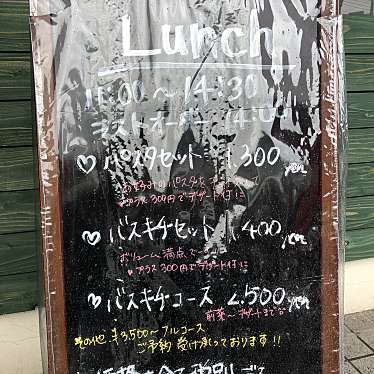 Lunch
11:00～14:30
ラストオーダー 14:00
♡パスタセット 1,300yen
お好みのパスタを
プラス300円でデザート付に
♡バスキチーセット 1,400yen
ボリューム満点で
プラス300円でデザート付に
♡バスキチコース 2,500yen
前菜～デザートまで
その他 ¥3,500～フルコース
ご予約受け承っております!!